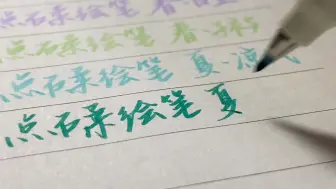 点石柔绘笔 春·
点石柔绘笔 春·
点石柔绘笔 夏·凉
点石柔绘笔 夏